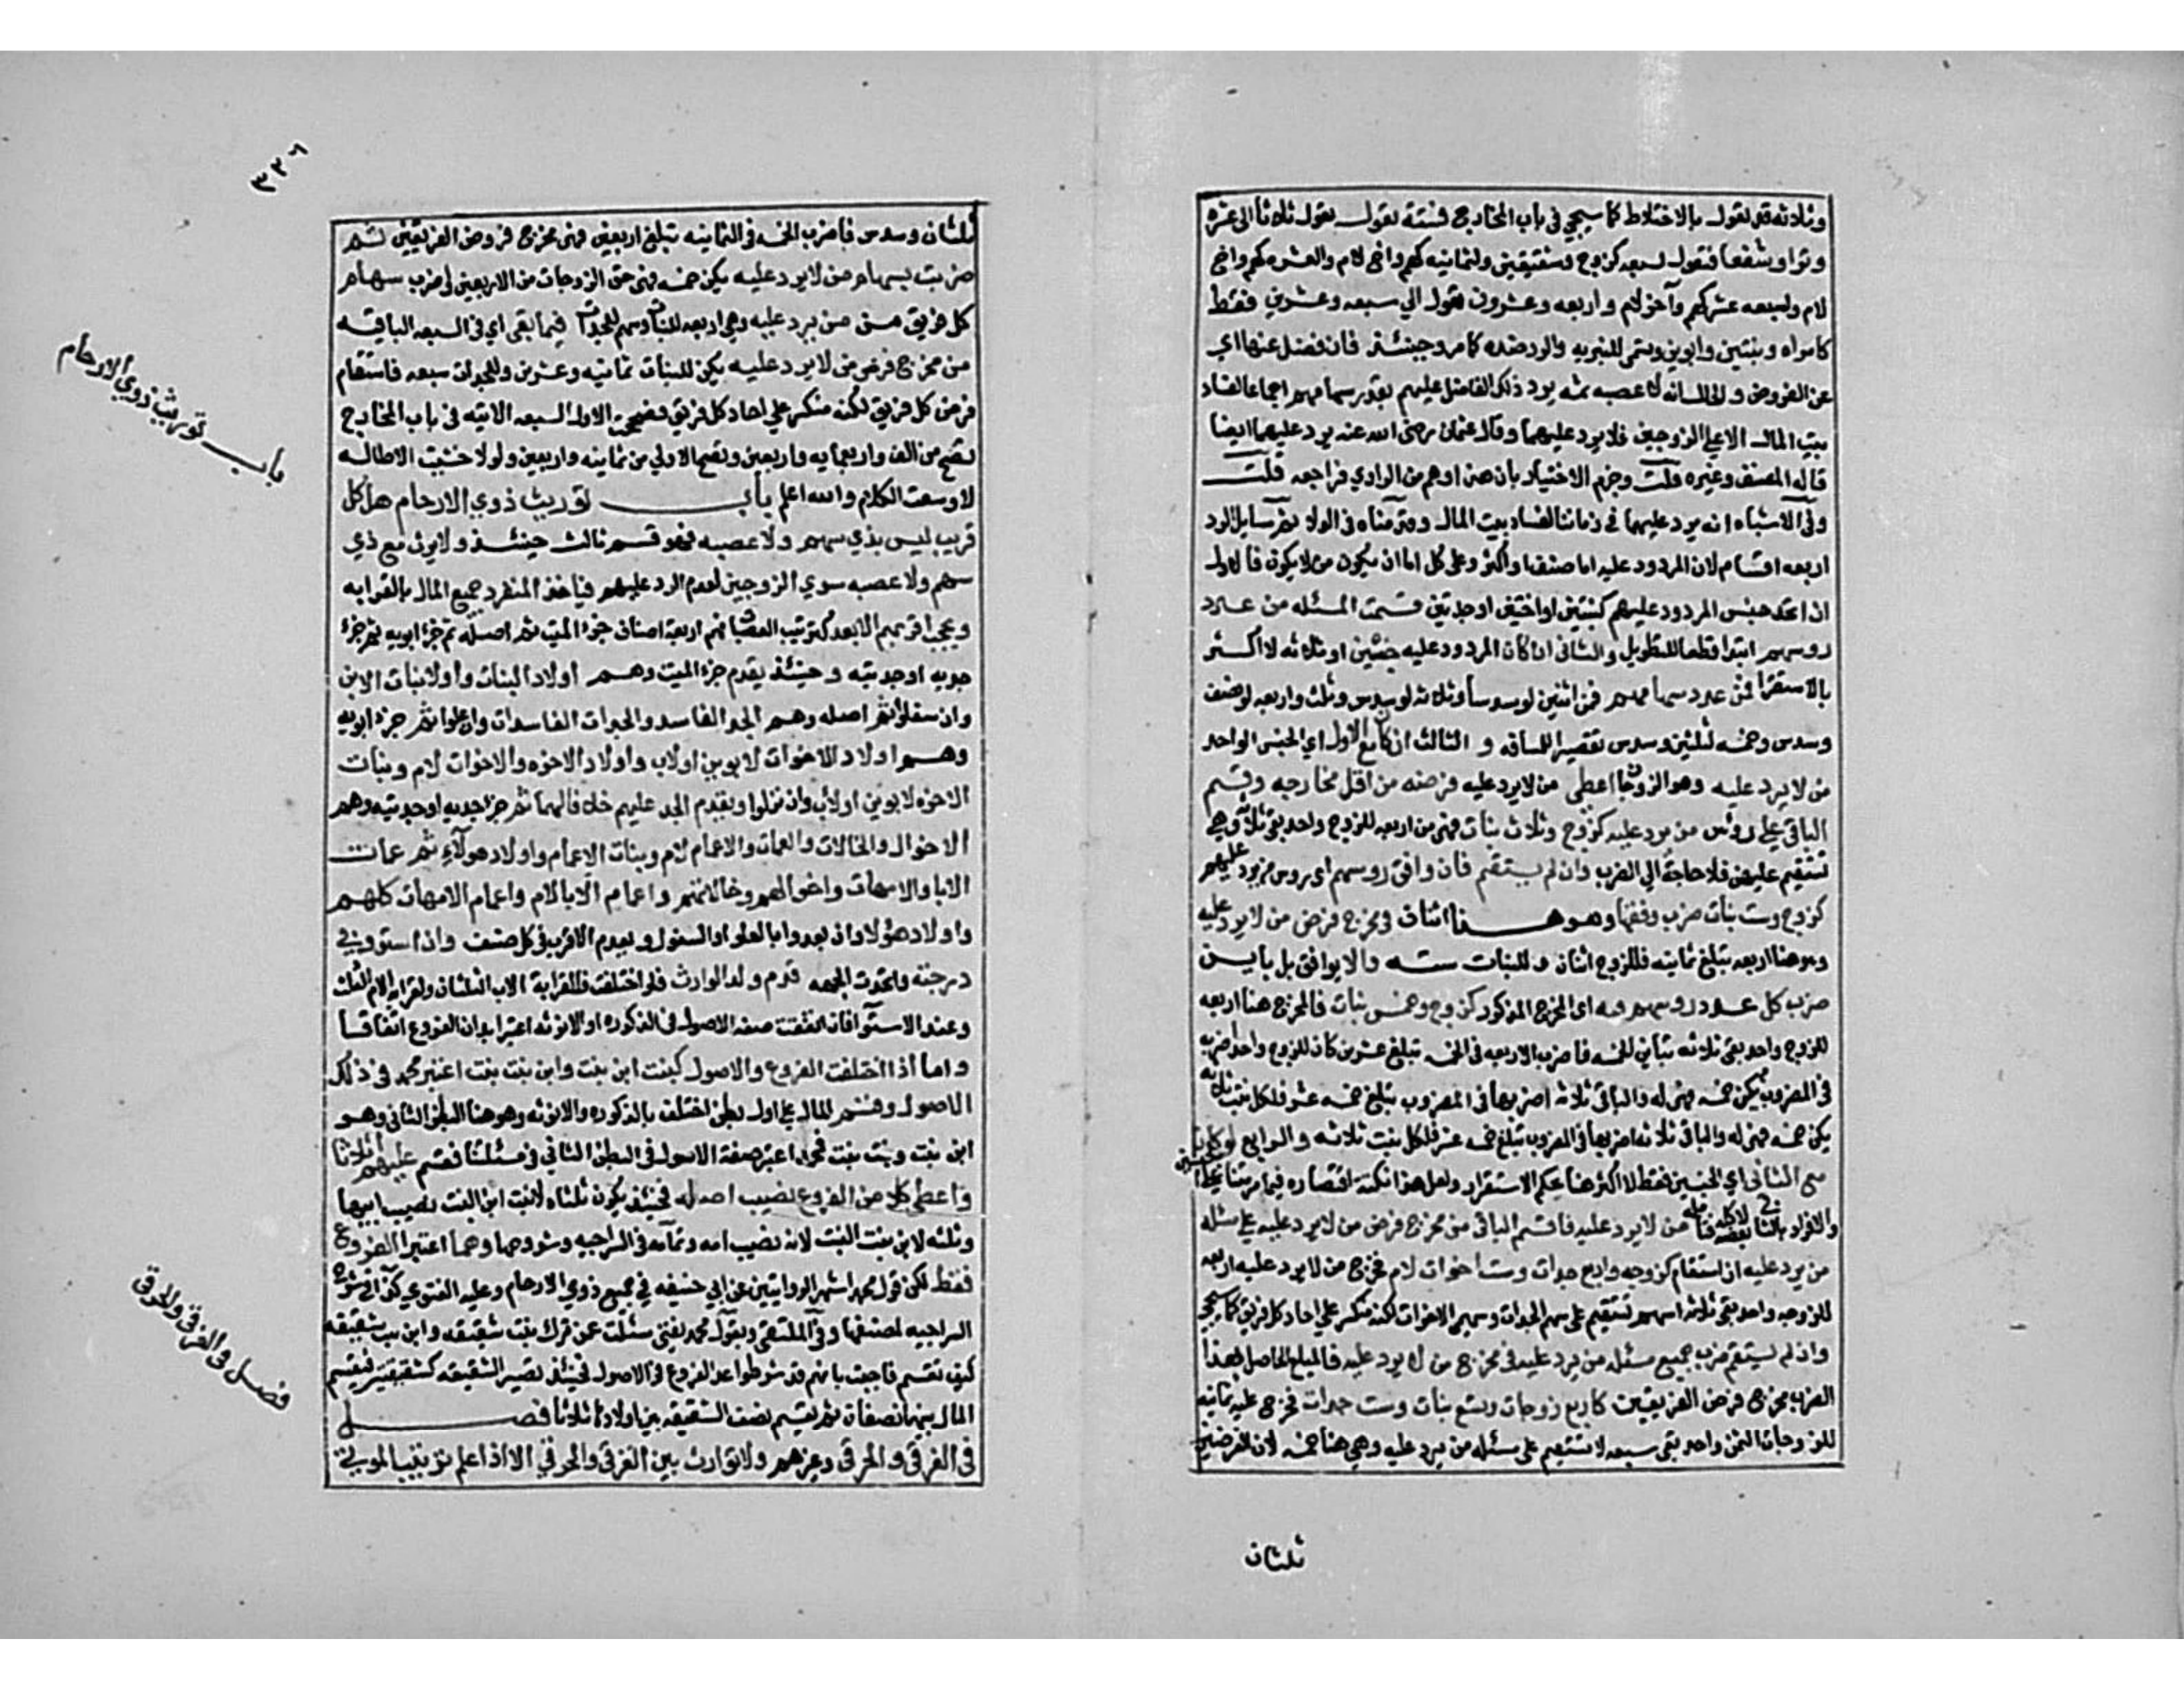 وثلاثة قد تعول بالاختلاط كما سيجي في باب المخارج فستة تعول تعول ثلاثا الى عشره
وترا وشفعا فتعول لسبعه كزوج وشقيقتين ولثمانيه كهم وام ولتسعه كهم واخ
لام ولعشره كهم وآخر لام واربعه وعشرون تعول الي سبعه وعشرين فقط
كامراه وبنتين وابوين وتسمى المنبريه والرد ضده كما مر وحينئذ فان فضل عنها اي
عن الفروض والحال انه لا عصبه ثمه يرد ذلك الفاضل عليهم بقدر سهامهم اجماعا لفساد
بيت المال الا على الزوجين فلا يرد عليهما وقال عثمان رضى الله عنه يرد عليهما ايضا
قاله المصنف وغيره قلت وجزم الاختيار بان هذا وهم من الراوي فراجعه قلت
وفي الاشباه انه يرد عليهما في زماننا لفساد بيت المال وقدمناه في الولاء ثم مسايل الرد
اربعه اقسام لان المردود عليه اما صنف او اكثر وعلى كل اما ان يكون من لا يرد او لا يكون فالاول
اذا اتحد جنس المردود عليهم كبنتين او اختين او جدتين قسمت المسئله من عدد
روسهم ابتدا قطعا للتطويل والثاني اذا كان المردود عليه جنسين او ثلاثه لا اكثر
بالاستقرا فمن عدد سهامهم فمن اثنين لو سدسان وثلاثه لو سدس وثلث واربعه لو نصف
وسدس وخمسه لثلثين وسدس تقصيرا للمسافه و الثالث ان كان مع الاول اي الجنس الواحد
من لا يرد عليه وهو الزوجان اعطى من لا يرد عليه فرضه من اقل مخارجه وقسم
الباقي على روس من يرد عليه كزوج وثلاث بنات فهي من اربعه للزوج واحد بقي ثلاثه وهي
تستقيم عليهن فلا حاجة الي الضرب وان لم يستقم فان وافق روسهم اي روس من يرد عليهم
كزوج وست بنات ضرب وفقها وهو هنا اثنان في مخرج فرض من لا يرد عليه
وهو هنا اربعه تبلغ ثمانيه فللزوج اثنان وللبنات سته والا يوافق بل باين
ضرب كل عدد روسهم فيه اي المخرج المذكور كزوج وخمس بنات فالمخرج هنا اربعه
للزوج واحد بقي ثلاثه تباين الخمسه فاضرب الاربعه في الخمسه تبلغ عشرين كان للزوج واحد اضربه
في المضروب يكن خمسه فهي له والباقي ثلاثه اضربها في المضروب تبلغ خمسه عشر فلكل بنت ثلاثه
يكن خمسه فهي له والباقي ثلاثه اضربها في المضروب تبلغ خمسه عشر فلكل بنت ثلاثه والرابع لو كان
مع الثاني اي الجنسين فقط لا اكثر هنا بحكم الاستقرار ولعل هذا نكتة اقتصاره فيما مر متنا على الجنسين
من لا يرد عليه فاقسم الباقي من مخرج فرض من لا يرد عليه على مسئله
من يرد عليه ان استقام كزوجه واربع جدات وست اخوات لام فمخرج من لا يرد عليه اربعه
للزوجه واحد بقي ثلاثه اسهم تستقيم على سهم الجدات وسهمي الاخوات لكنه منكسر على احاد كل فريق كما سيجي
وان لم يستقم ضرب جميع مسئله من يرد عليه في مخرج من لا يرد عليه فالمبلغ الحاصل بهذا
الضرب مخرج فرض الفريقين كاربع زوجات وتسع بنات وست جدات فمخرج عليه ثمانيه
للزوجات الثمن واحد بقي سبعه لا تستقيم على مسئله من يرد عليه وهي هنا خمسه لان الفرضين
ثلثان
٣٣٦
ثلثان وسدس فاضرب الخمسه في الثمانيه تبلغ اربعين فهى مخرج فروض الفريقين ثم
ضربت سهام من لا يرد عليه يكن خمسه فهى حق الزوجات من الاربعين فاضرب سهام
كل فريق من من يرد عليه وهي اربعه للبنات وسهم للجدات فيما بقي اي في السبعه الباقيه
من مخرج فرض من لا يرد عليه يكن للبنات ثمانيه وعشرين وللجدات سبعه فاستقام
فرض كل فريق لكنه منكسر علي احاد كل فريق فصحح بالاصول السبعه الاتيه في باب المخارج
تصح من الف واربعمايه واربعين وتصح الاولي من ثمانيه واربعين ولولا خشيت الاطاله
لاوسعت الكلام والله اعلم باب توريث ذوي الارحام هو كل
قريب ليس بذي سهم ولا عصبه فهو قسم ثالث حينئذ ولا يرث مع ذي
سهم ولا عصبه سوي الزوجين لعدم الرد عليهم فياخذ المنفرد جميع المال بالقرابه
ويحجب اقربهم الابعد كترتيب العصبات فهم اربعة اصناف جزء الميت ثم اصله ثم جزء ابويه ثم جزء
جديه او جدتيه وحينئذ يقدم جزء الميت وهم اولاد البنات واولاد بنات الابن
وان سفلوا ثم اصله وهم الجد الفاسد والجدات الفاسدات وان علوا ثم جزء ابويه
وهم اولاد الاخوات لابوين اولاب واولاد الاخوه والاخوات لام وبنات
الاخوه لابوين اولاب وان نزلوا ويقدم الجد عليهم خلافا لهما ثم جزء جديه او جدتيه وهم
الاخوال والخالات والعمات والاعمام لام وبنات الاعمام واولاد هولاء ثم عمات
الابا والامهات واخوالهم وخالاتهم واعمام الابا لام واعمام الامهات كلهم
واولاد هؤلا وان بعدوا بالعلو او السفول ويقدم الاقرب في كل صنف واذا استووا في
درجته واتحدت الجهه قدم ولد الوارث فلو اختلفت فلقرابة الاب الثلثان ولقرابه الام الثلث
وعند الاستوا فان اتفقت صفه الاصول في الذكوره او الانوثه اعتبر ابدان الفروع اتفاقا
واما اذا اختلفت الفروع والاصول كبنت ابن بنت وابن بنت بنت اعتبر محمد في ذلك
الاصول وقسم المال على اول بطن اختلف بالذكوره والانوثه وهو هنا البطن الثاني وهو
ابن بنت وبنت بنت فمحمد اعتبر صفة الاصول في البطن الثاني في مسئلتنا فقسم عليهم اثلاثا
واعطى كلا من الفروع نصيب اصله فحينئذ يكون ثلثاه لبنت ابن البنت نصيب ابيها
وثلثه لابن بنت البنت لانه نصيب امه وتمامه في السراجيه وشروحها وهما اعتبرا الفروع
فقط لكن قول محمد اشهر الروايتين عن ابي حنيفه في جميع ذوي الارحام وعليه الفتوي كذا في شرح
السراجيه لمصنفها وفي الملتقى وبقول محمد يفتى سئلت عن من ترك بنت شقيقه وابن بنت شقيقه
كيف تقسم فاجبت بانهم قد شرطوا عد الفروع في الاصول فحينئذ تصير الشقيقه كشقيقتين فيقسم
المال بينهما نصفان ثم يقسم نصف الشقيقه بين اولادها اثلاثا فصل
في الغرقى والحرقى وغيرهم ولا توارث بين الغرقى والحرقي الا اذا علم ترتيب الموتى
باب توريث ذوي الارحام
فصل في الغرقى والحرقى